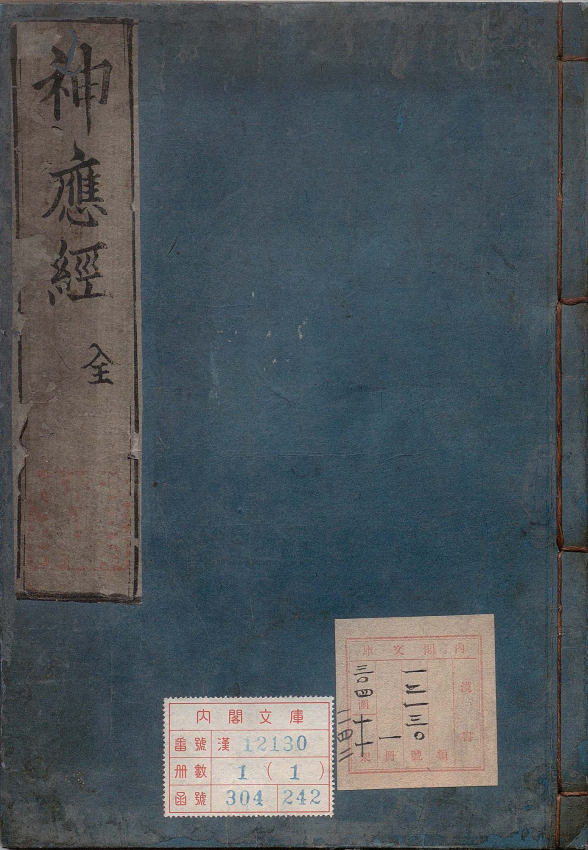 神應經
全
内閣文庫
番號 漢 12130
册數 1 (1)
函號 304 242
内閣文庫
漢書
一二一三〇
一
三〇四
二四二